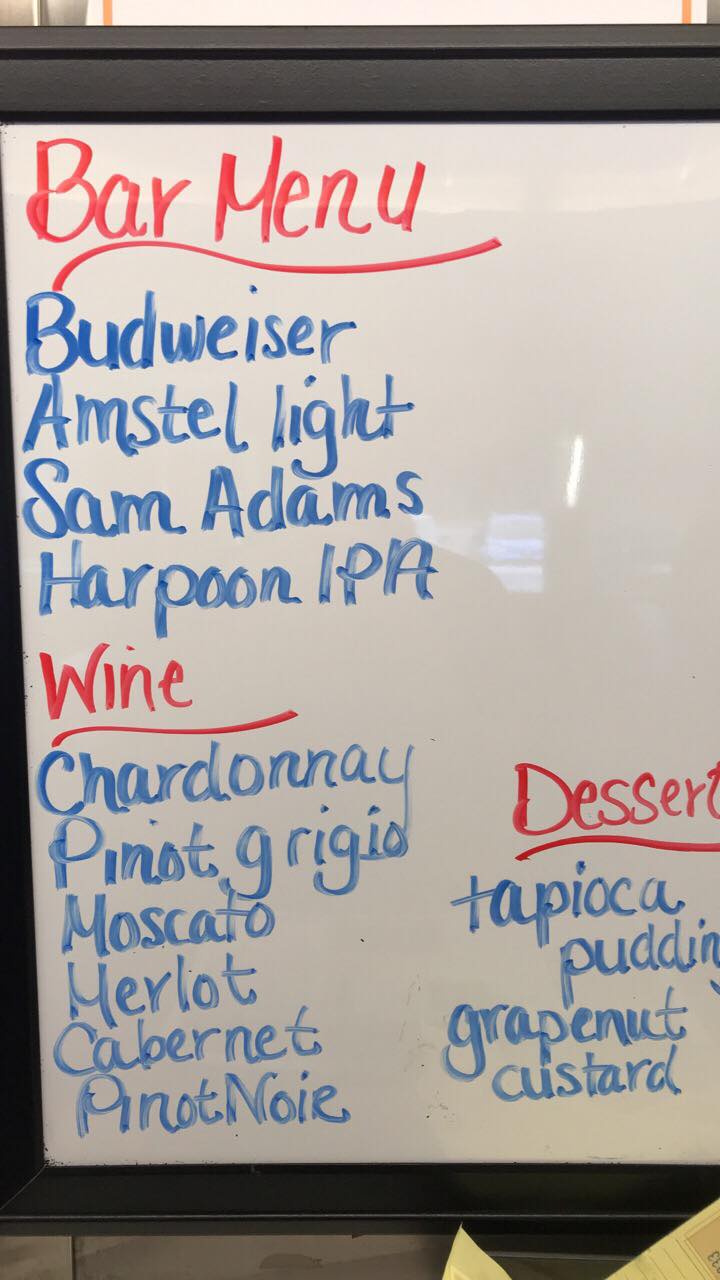 Bar Menu
Budweiser
Amstel light
Sam Adams
Harpoon IPA
Wine
Chardonnay
Pinot grigio
Moscato
Merlot
Cabernet
Pinot Noie
Dessert
tapioca
puddin
grapenut
custard